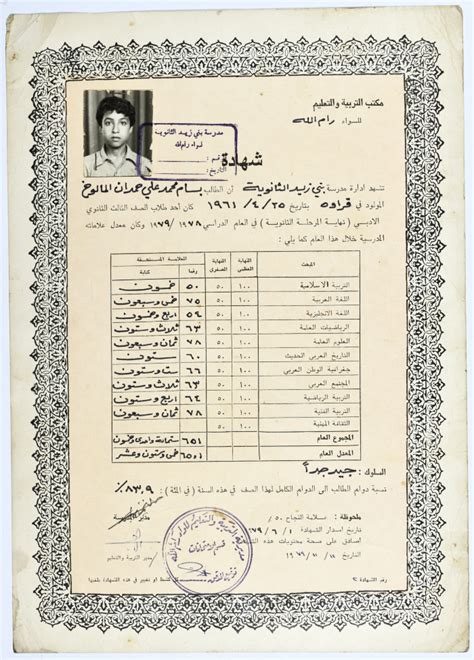 مكتب التربية والتعليم
للسواء رام الله
مدرسة بني زيد الثانوية
لواء رام الله
رقم :
التاريخ :
شهادة
تشهد ادارة مدرسة بني زيد الثانوية أن الطالب بسام محمد علي حمدان المالوخ
المولود في قراوه بتاريخ ٢٥/ ٤/ ١٩٦١ كان أحد طلاب الصف الثالث الثانوي
الأدبي ( نهاية المرحلة الثانوية ) في العام الدراسي ١٩٧٨/ ١٩٧٩ وكان معدل علاماته
المدرسية خلال هذا العام كما يلي :
المبحث النهاية العظمى النهاية الصغرى العلامة المستحقة
رقما كتابة
التربية الاسلامية ١٠٠ ٥٠ ٥٠ خمسون
اللغة العربية ١٠٠ ٥٠ ٧٥ خمس وسبعون
اللغة الانجليزية ١٠٠ ٥٠ ٥٤ اربع وخمسون
الرياضيات العامة ١٠٠ ٥٠ ٦٣ ثلاث وستون
العلوم العامة ١٠٠ ٥٠ ٧٨ ثمان وسبعون
التاريخ العربي الحديث ١٠٠ ٥٠ ٦٠ ستون
جغرافية الوطن العربي ١٠٠ ٥٠ ٦٦ ستة وستون
المجتمع العربي ١٠٠ ٥٠ ٦٣ ثلاث وستون
التربية الرياضية ١٠٠ ٥٠ ٦٤ اربع وستون
التربية الفنية ١٠٠ ٥٠ ٧٨ ثمان وسبعون
الثقافة المهنية ١٠٠ ٥٠
المجموع العام ٦٥١ ستمائة واحدى وخمسون
المعدل العام ٦٥،١ خمس وستون وعشر
السلوك : جيد جداً
نسبة دوام الطالب الى الدوام الكامل لهذا الصف في هذه السنة ( في المئة ) ٨٣،٩٪
ملحوظة :
تاريخ اصدار الشهادة
اصادق على صحة محتويات هذه الشهادة
التاريخ
مدير التربية والتعليم
رقم الشهادة